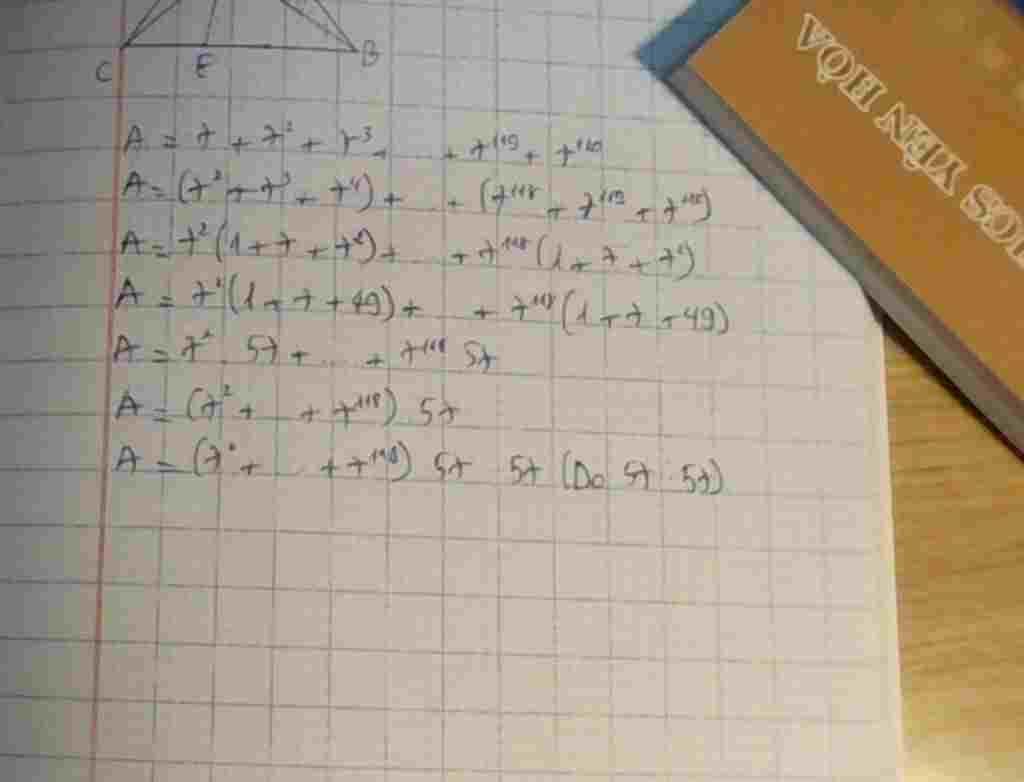 C E B
A = 7 + 7² + 7³ + ... + 7¹¹⁹ + 7¹²⁰
A = (7² + 7³ + 7⁴) + ... + (7¹¹⁸ + 7¹¹⁹ + 7¹²⁰)
A = 7²(1 + 7 + 7²) + ... + 7¹¹⁸(1 + 7 + 7²)
A = 7²(1 + 7 + 49) + ... + 7¹¹⁸(1 + 7 + 49)
A = 7² . 57 + ... + 7¹¹⁸ 57
A = (7² + ... + 7¹¹⁸) . 57
A = (7² + ... + 7¹¹⁸) 57 57 (Do 57 : 57)